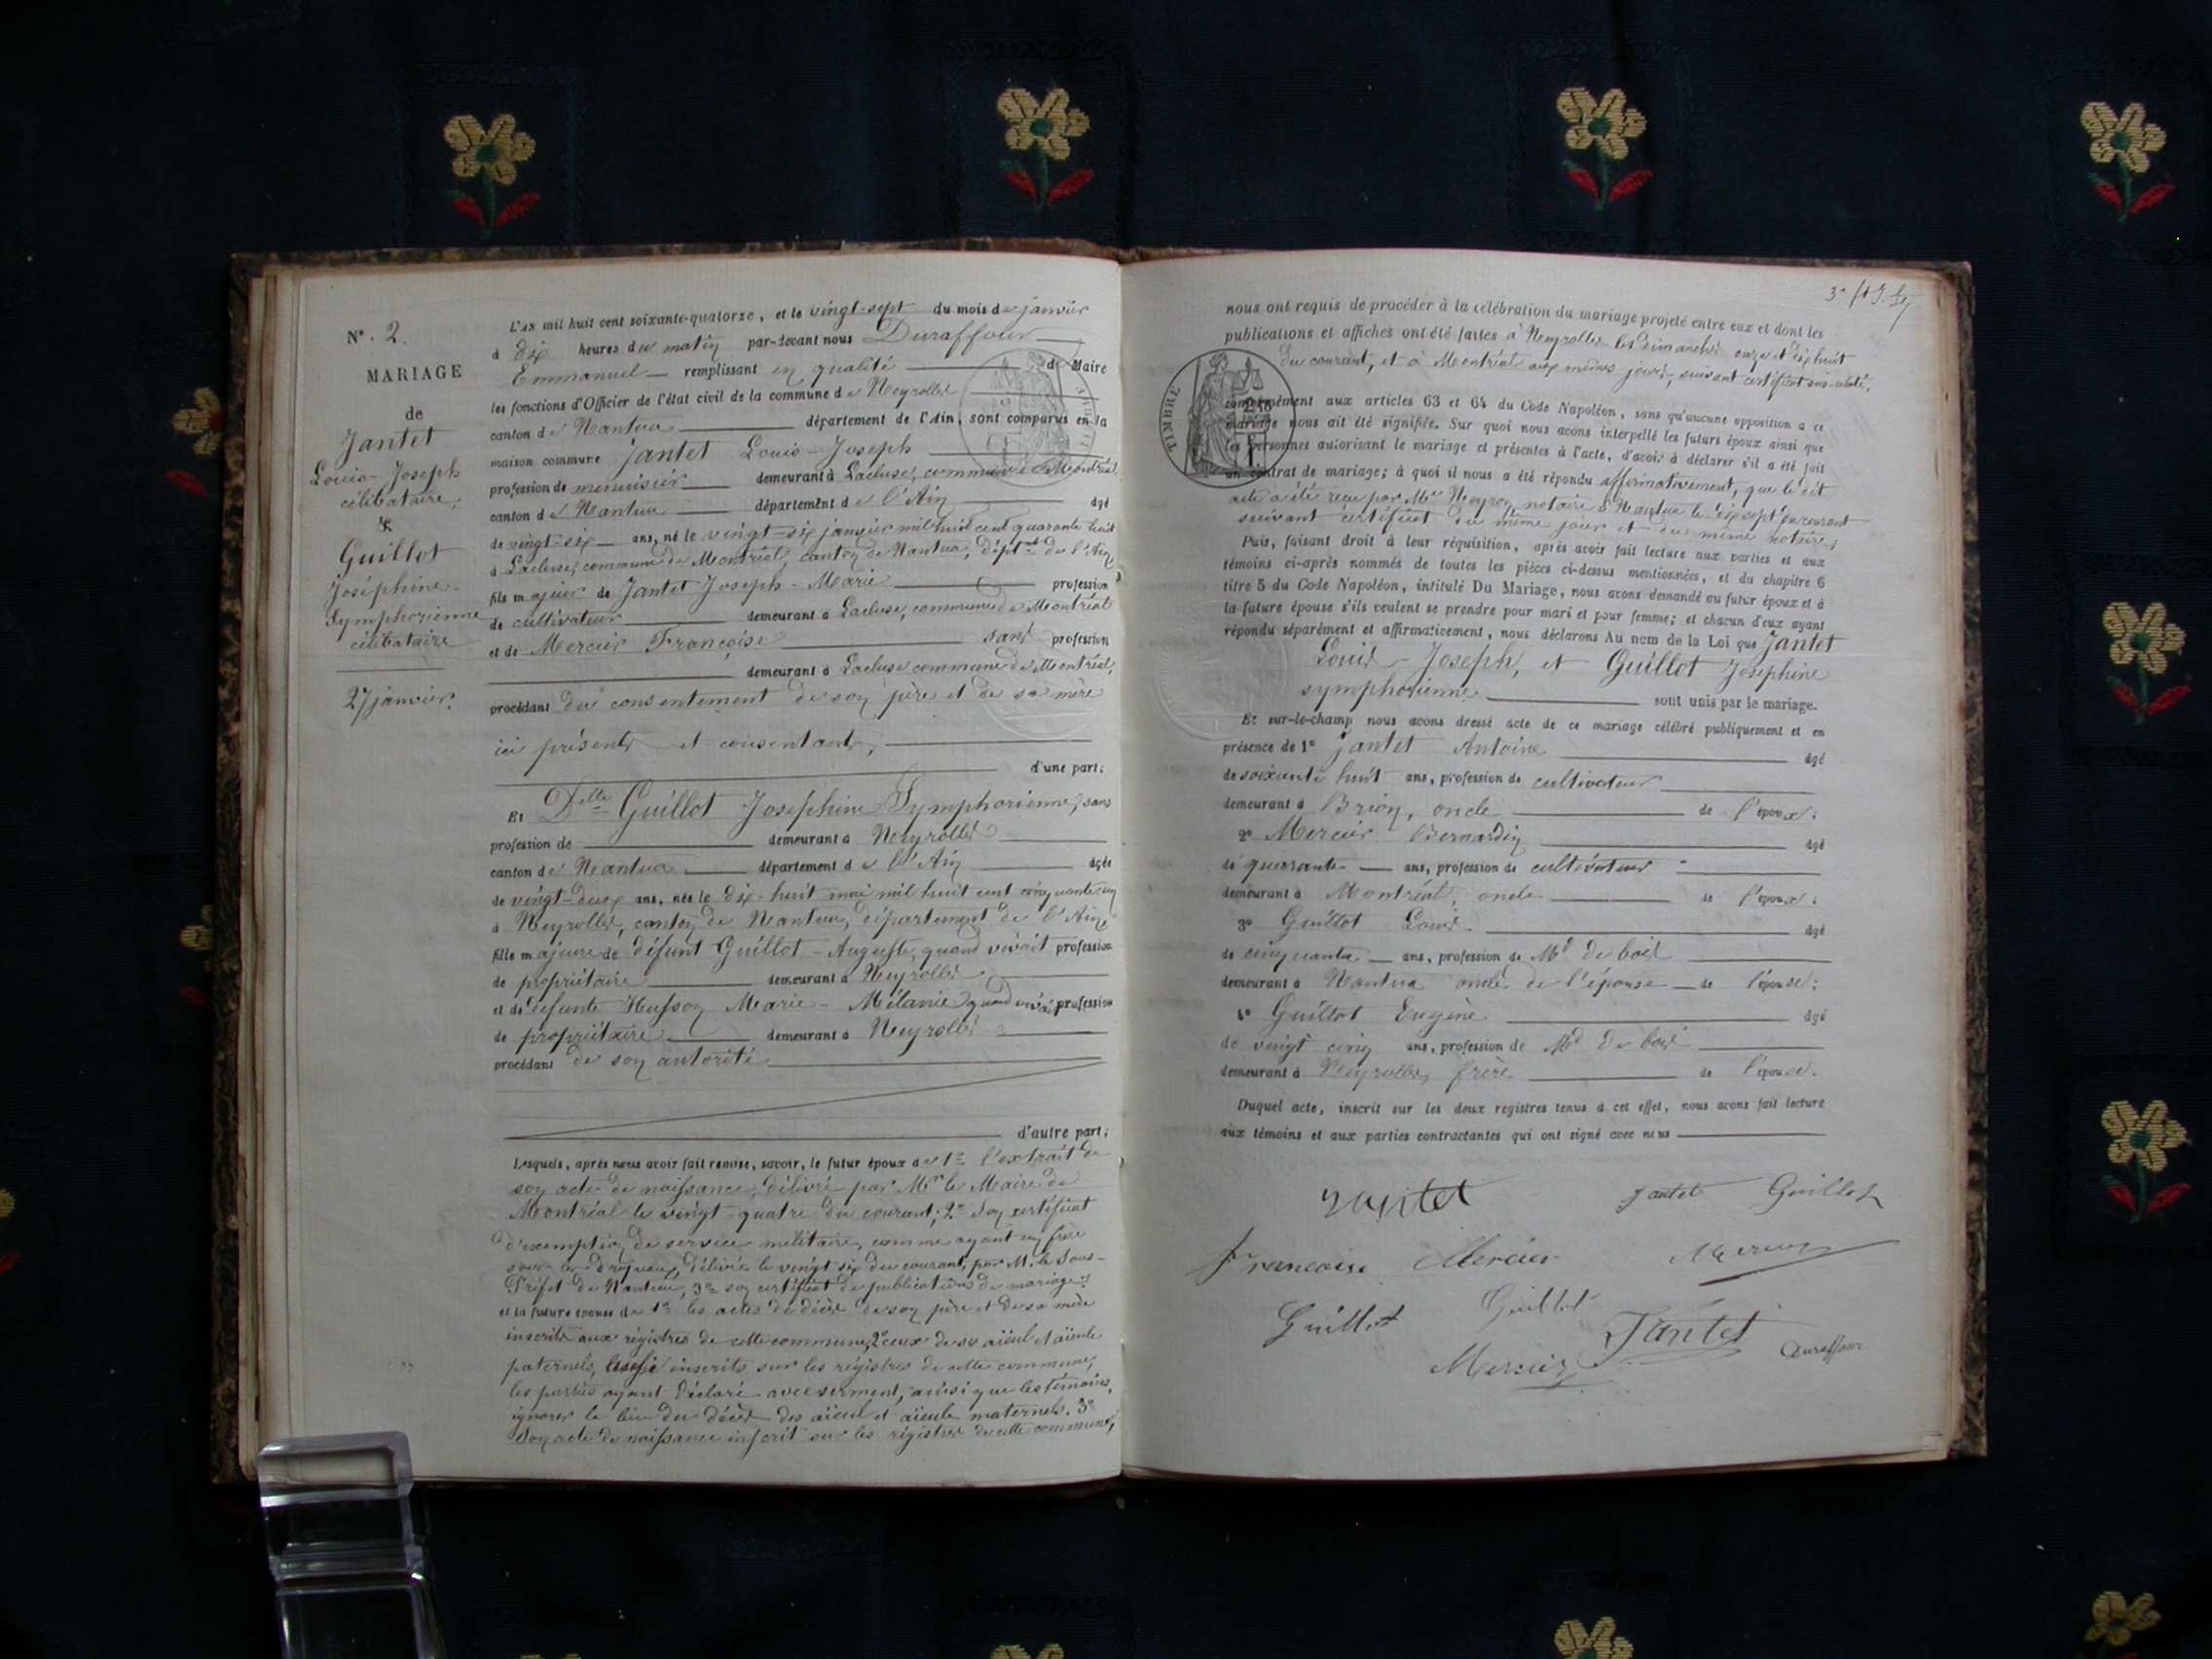 N°. 2.
MARIAGE
de
Jantet
Louis-Joseph
célibataire;
&
Guillot
Joséphine-
Symphorienne
célibataire
27 janvier.
L'an mil huit cent soixante-quatorze, et le vingt-sept du mois de janvier
à dix heures du matin par-devant nous Duraffour
Emmanuel remplissant en qualité de Maire
les fonctions d'Officier de l'état civil de la commune de Neyrolles
canton de Nantua département de l'Ain, sont comparus en la
maison commune Jantet Louis-Joseph
profession de menuisier demeurant à Lacluse, commune de Montréal,
canton de Nantua département de l'Ain âgé
de vingt-six ans, né le vingt-six janvier mil huit cent quarante huit
à Lacluse, commune de Montréal, canton de Nantua, dépt de l'Ain
fils majeur de Jantet Joseph-Marie profession
de cultivateur demeurant à Lacluse, commune de Montréal
et de Mercier Françoise sans profession
demeurant à Lacluse commune de Montréal,
procédant du consentement de son père et de sa mère
ici présents et consentants,
d'une part;
Et Delle Guillot Joséphine Symphorienne, sans
profession de demeurant à Neyrolles
canton de Nantua département de l'Ain âgée
de vingt-deux ans, née le dix-huit mai mil huit cent cinquante un
à Neyrolles, canton de Nantua, département de l'Ain
fille majeure de défunt Guillot-Auguste, quand vivait profession
de propriétaire demeurant à Neyrolles
et de défunte Husson Marie-Mélanie quand vivait profession
de propriétaire demeurant à Neyrolles
procédant de son autorité
d'autre part;
Lesquels, après nous avoir fait remise, savoir, le futur époux de 1° l'extrait de
son acte de naissance, délivré par Mr le Maire de
Montréal le vingt-quatre du courant; 2° son certificat
d'exemption de service militaire, comme ayant un frère
sous les drapeaux, délivré le vingt six du courant, par M. le Sous-
Préfet de Nantua, 3° son certificat de publications de mariage;
et la future épouse de 1° les actes de décès de son père et de sa mère
inscrits aux régistres de cette commune, 2° ceux de ses aïeul et aïeule
paternels, aussi inscrits sur les régistres de cette commune,
les parties ayant déclaré avec serment, ainsi que les témoins,
ignorer le lieu du décès des aïeul et aïeule maternels. 3°
Son acte de naissance inscrit sur les régistres de cette commune,
nous ont requis de procéder à la célébration du mariage projeté entre eux et dont les
publications et affiches ont été faites à Neyrolles les dimanches onze et dix huit
du courant, et à Montréal aux mêmes jours, suivant certificat sus-relaté,
TIMBRE
conformément aux articles 63 et 64 du Code Napoléon, sans qu'aucune opposition à ce
mariage nous ait été signifiée. Sur quoi nous avons interpellé les futurs époux ainsi que
les personnes autorisant le mariage et présentes à l'acte, d'avoir à déclarer s'il a été fait
un contrat de mariage; à quoi il nous a été répondu affirmativement, que le dit
acte a été reçu par Me Neyron notaire à Nantua le dix sept du courant
suivant certificat du même jour et du même notaire;
Puis, faisant droit à leur réquisition, après avoir fait lecture aux parties et aux
témoins ci-après nommés de toutes les pièces ci-dessus mentionnées, et du chapitre 6
titre 5 du Code Napoléon, intitulé Du Mariage, nous avons demandé au futur époux et à
la future épouse s'ils veulent se prendre pour mari et pour femme; et chacun d'eux ayant
répondu séparément et affirmativement, nous déclarons Au nom de la Loi que Jantet
Louis-Joseph, et Guillot Joséphine
symphorienne sont unis par le mariage.
Et sur-le-champ nous avons dressé acte de ce mariage célébré publiquement et en
présence de 1° Jantet Antoine âgé
de soixante huit ans, profession de cultivateur
demeurant à Brion, oncle de l'époux;
2° Mercier Bernardin âgé
de quarante ans, profession de cultivateur
demeurant à Montréal, oncle de l'époux;
3° Guillot Louis âgé
de cinquante ans, profession de Md de bois
demeurant à Nantua oncle de l'épouse de l'épouse;
4° Guillot Eugène âgé
de vingt cinq ans, profession de Md de bois
demeurant à Neyrolles, frère de l'épouse.
Duquel acte, inscrit sur les deux registres tenus à cet effet, nous avons fait lecture
aux témoins et aux parties contractantes qui ont signé avec nous
Jantet Jantet Guillot
Françoise Mercier Mercier
Guillot Guillot
Mercier Jantet Duraffour